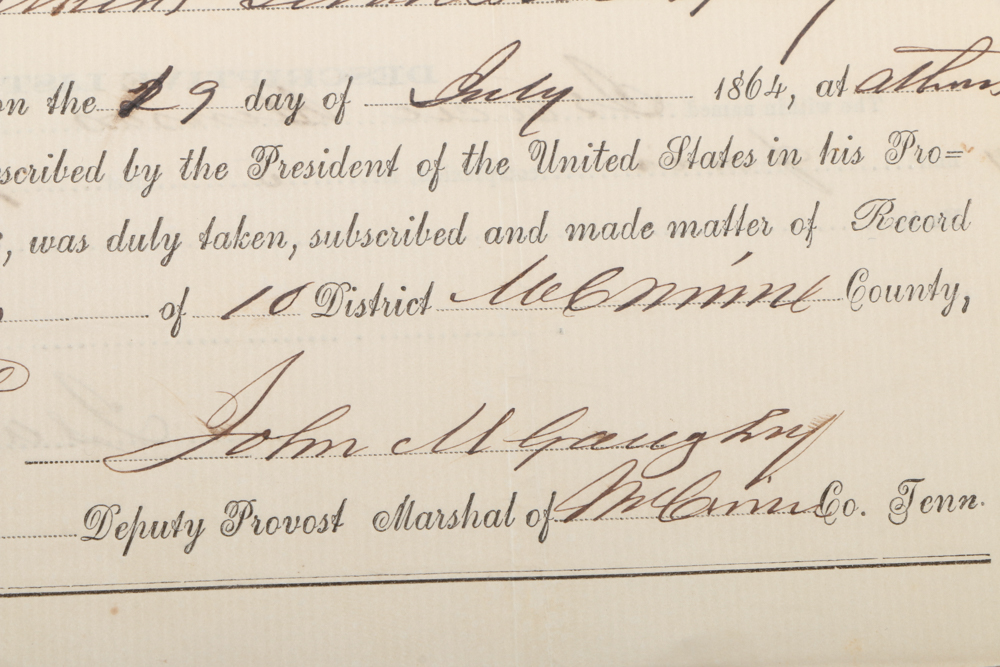 on the 29 day of July 1864, at Athens
scribed by the President of the United States in his Pro=
, was duly taken, subscribed and made matter of Record
of 10 District McMinn County,
John M Gaughy
Deputy Provost Marshal of McMinn Co. Tenn.